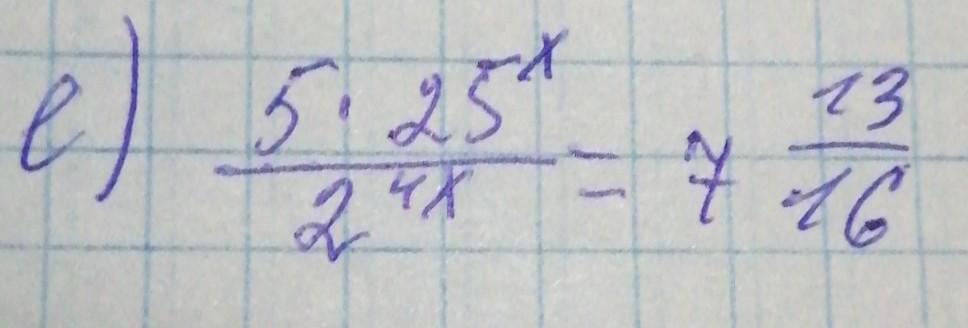 e) \frac{5 \cdot 25^x}{2^{4x}} = 7 \frac{13}{16}